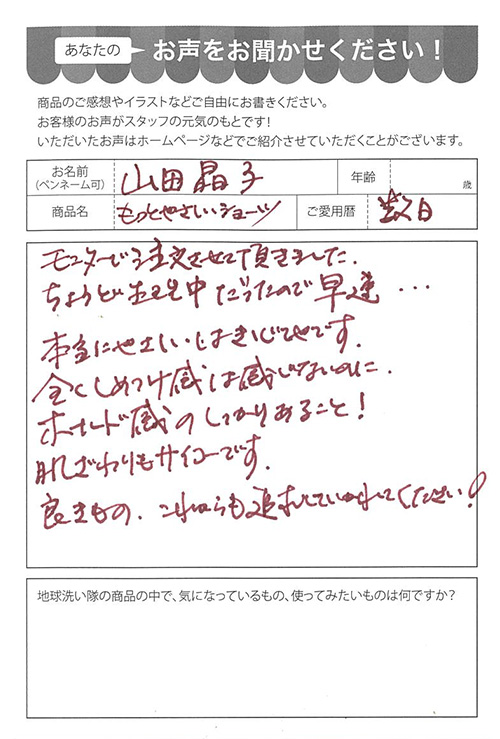 あなたの お声をお聞かせください！
商品のご感想やイラストなどご自由にお書きください。
お客様のお声がスタッフの元気のもとです！
いただいたお声はホームページなどでご紹介させていただくことがございます。
お名前 (ペンネーム可) 山田晶子 年齢 歳
商品名 もっとやさしいショーツ ご愛用暦 数日
モニターで注文させて頂きました.
ちょうど生理中だったので早速…
本当にやさしいはきごこちです.
全くしめつけ感は感じないのに.
ホールド感のしっかりあること!
肌ざわりもサイコーです.
良きもの.これからも追求していかれてください!
地球洗い隊の商品の中で、気になっているもの、使ってみたいものは何ですか？